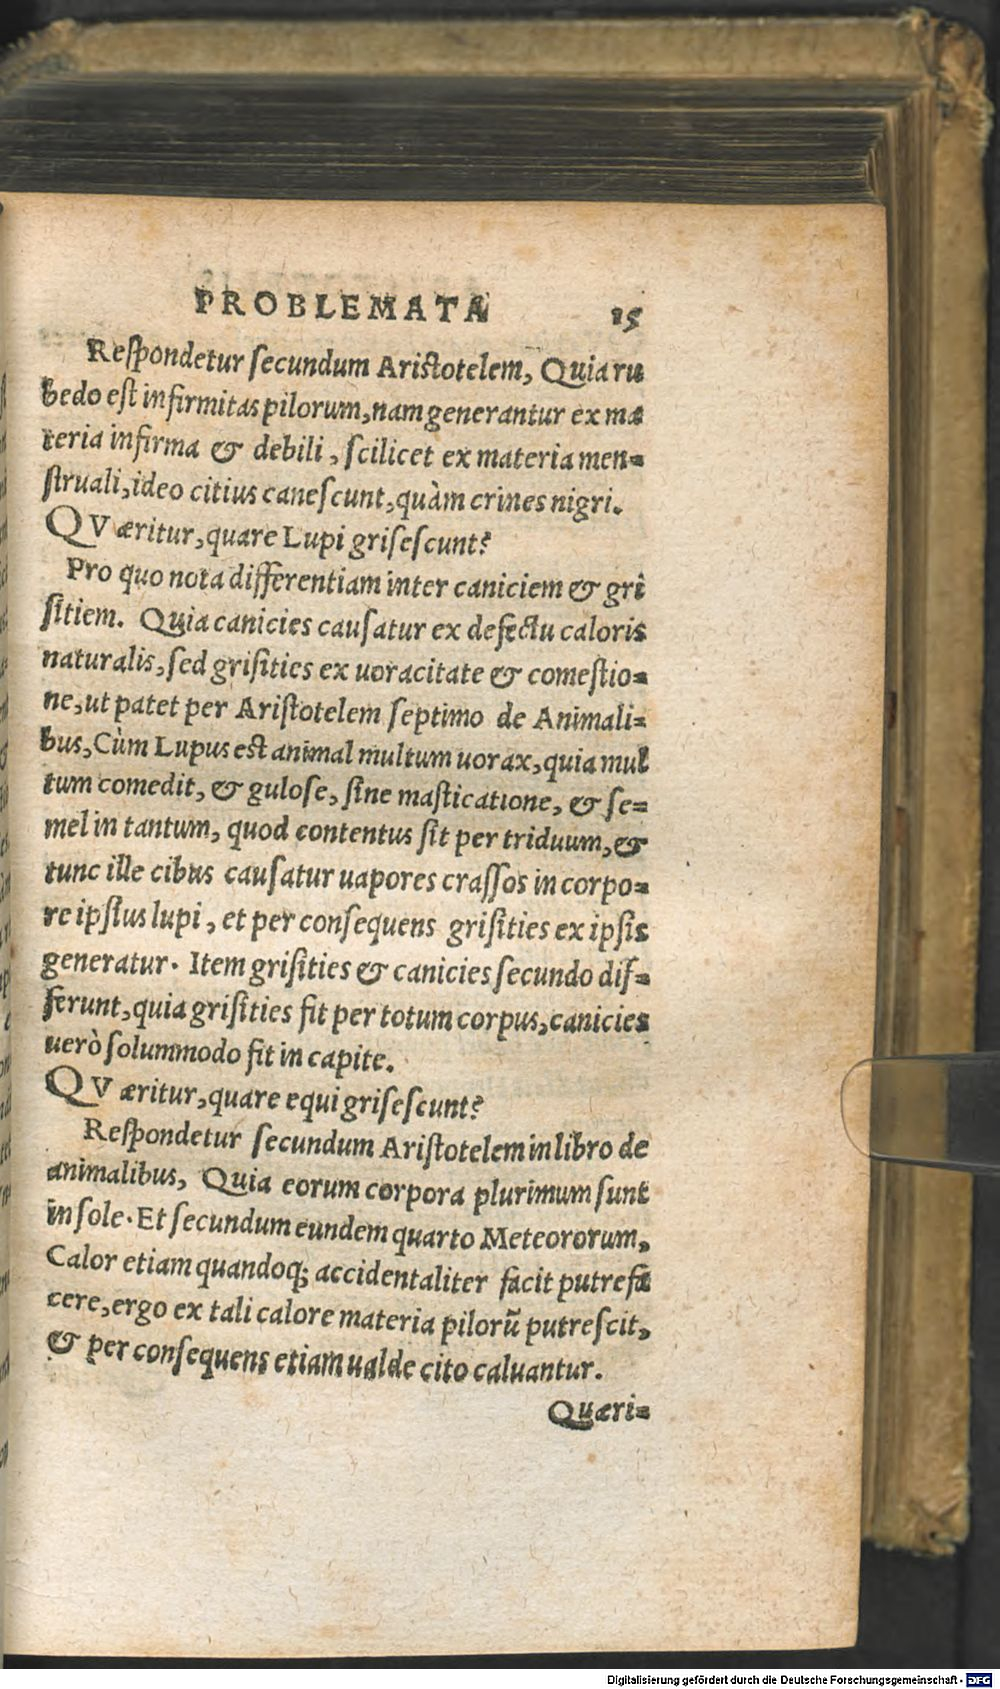 PROBLEMATA 15
Reſpondetur ſecundum Ariſtotelem, Quia ru
bedo eſt infirmitas pilorum, nam generantur ex ma
teria infirma & debili, ſcilicet ex materia men=
ſtruali, ideo citius caneſcunt, quàm crines nigri.
QVæritur, quare Lupi griſeſcunt?
Pro quo nota differentiam inter caniciem & gri
ſitiem. Quia canicies cauſatur ex defectu caloris
naturalis, ſed griſities ex uoracitate & comeſtio=
ne, ut patet per Ariſtotelem ſeptimo de Animali=
bus, Cùm Lupus eſt animal multum uorax, quia mul
tum comedit, & guloſe, ſine maſticatione, & ſe=
mel in tantum, quod contentus ſit per triduum, &
tunc ille cibus cauſatur uapores craſſos in corpo=
re ipſius lupi, et per conſequens griſities ex ipſis
generatur. Item griſities & canicies ſecundo dif=
ferunt, quia griſities fit per totum corpus, canicies
uerò ſolummodo fit in capite.
QVæritur, quare equi griſeſcunt?
Reſpondetur ſecundum Ariſtotelem in libro de
animalibus, Quia eorum corpora plurimum ſunt
in ſole. Et ſecundum eundem quarto Meteororum,
Calor etiam quandoq; accidentaliter facit putrefa
cere, ergo ex tali calore materia pilorū putreſcit,
& per conſequens etiam ualde cito caluantur.
Quæri=
Digitalisierung gefördert durch die Deutsche Forschungsgemeinschaft - DFG